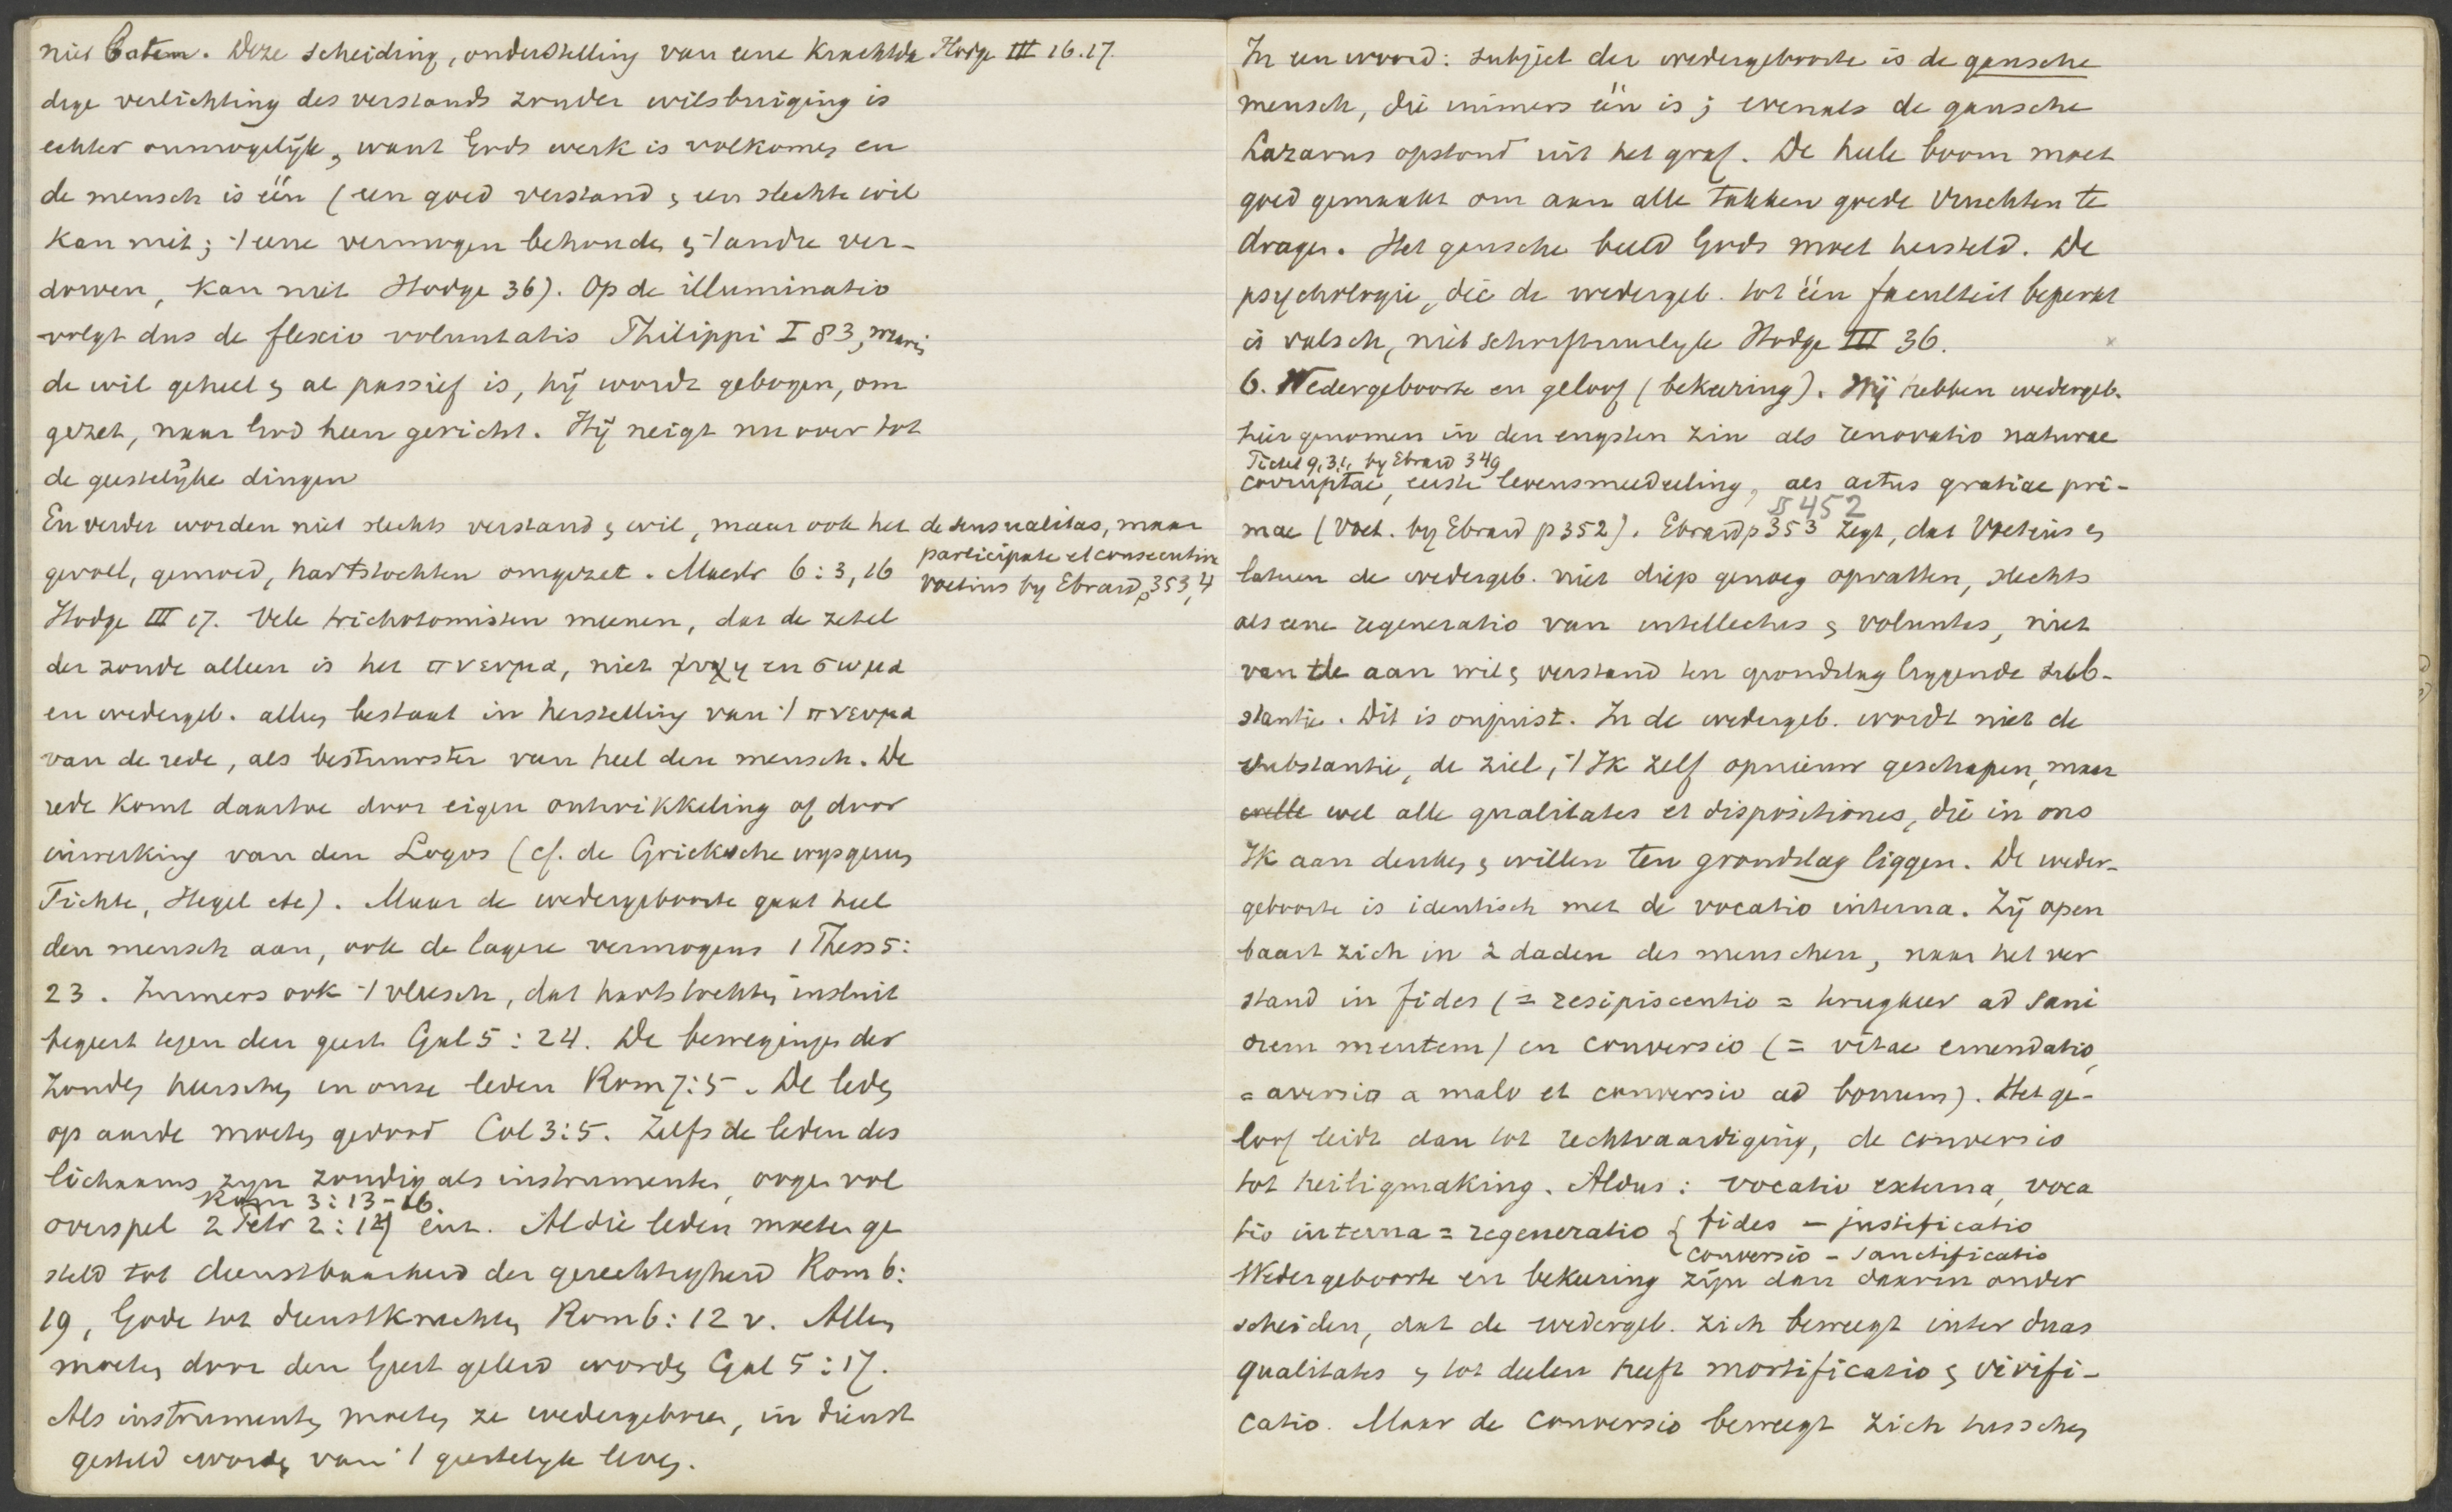 niet baten. Deze scheiding, onderstelling van eene krachtda
dige verlichting des verstands zonder wilsbuiging is
echter onmogelijk, want Gods werk is volkomen en
de mensch is één (een goed verstand en een slechte wil
kan niet; 't eene vermogen behouden en 't andre ver-
dorven, kan niet Hodge 36). Op de illuminatio
volgt dus de flexio voluntatis Philippi I 83, waarin
de wil geheel en al passief is, hij wordt gebogen, om
gezet, naar God heen gericht. Hij neigt nu over tot
de geestelijke dingen
En verder worden niet slechts verstand en wil, maar ook het
gevoel, gemoed, hartstochten omgezet. Maestr 6:3,16
Hodge III 17. Vele trichotomisten meenen, dat de zetel
der zonde alleen is het πνευμα, niet ψυχη en σωμα
en wedergeb. alleen bestaat in herstelling van 't πνευμα
van de rede, als bestuurster van heel den mensch. De
rede komt daartoe door eigen ontwikkeling of door
inwerking van den Logos (cf. de Grieksche wijsgeeren
Fichte, Hegel etc). Maar de wedergeboorte gaat heel
den mensch aan, ook de lagere vermogens 1 Thess 5:
23. Immers ook 't vleesch, dat hartstochten insluit
begeert tegen den geest Gal 5:24. De bewegingen der
zonden heerschen in onze leden Rom 7:5. De leden
op aarde moeten gedood Col 3:5. Zelfs de leden des
lichaams zijn zondig als instrumenten, oogen vol
Rom 3:13-16.
overspel 2 Petr 2:14 enz. Al die leden moeten ge
steld tot dienstbaarheid der gerechtigheid Rom 6:
19, Gode tot dienstknechten Rom 6:12 v. Allen
moeten door den Geest geleid worden Gal 5:17.
Als instrumenten moeten ze wedergeboren, in dienst
gesteld worden van 't geestelijk leven.
Hodge III 16.17.
de sensualitas, maar
participate et consecutive
Voetius by Ebrard p 353,4
In een woord: subject der wedergeboorte is de gansche
mensch, die immers één is; evenals de gansche
Lazarus opstond uit het graf. De heele boom moet
goed gemaakt om aan alle takken goede vruchten te
dragen. Het gansche beeld Gods moet hersteld. De
psychologie, die de wedergeb. tot één faculteit beperkt
is valsch, niet schriftuurlijk Hodge III 36.
6. Wedergeboorte en geloof (bekeering). Wij hebben wedergeb.
hier genomen in den engsten zin als renovatio naturae
by Ebrard 349
corruptae, eerste levensmededeeling, als actus gratiae pri-
§ 452
mae (Voet. by Ebrard p 352). Ebrard p 353 zegt, dat Voetius en
lateren de wedergeb. niet diep genoeg opvatten, slechts
als eene regeneratio van intellectus en voluntas, niet
van de aan wil en verstand ten grondslag liggende sub-
stantie. Dit is onjuist. In de wedergeb. wordt niet de
substantie, de ziel, 't Ik zelf opnieuw geschapen, maar
wel alle qualitates et dispositiones, die in ons
Ik aan denken en willen ten grondslag liggen. De weder-
geboorte is identisch met de vocatio interna. Zij open
baart zich in 2 daden des menschen, naar het ver
stand in fides (= resipiscentio = terugkeer ad sani
orem mentem) en conversio (= vitae emendatio,
= aversio a malo et conversio ad bonum). Het ge-
loof leidt dan tot rechtvaardiging, de conversio
tot heiligmaking. Aldus: vocatio externa, voca
tio interna = regeneratio { fides – justificatio
conversio – sanctificatio
Wedergeboorte en bekeering zijn dan daarin onder
scheiden, dat de wedergeb. zich beweegt inter duas
qualitates en tot deelen heeft mortificatio en vivifi-
catio. Maar de conversio beweegt zich tusschen